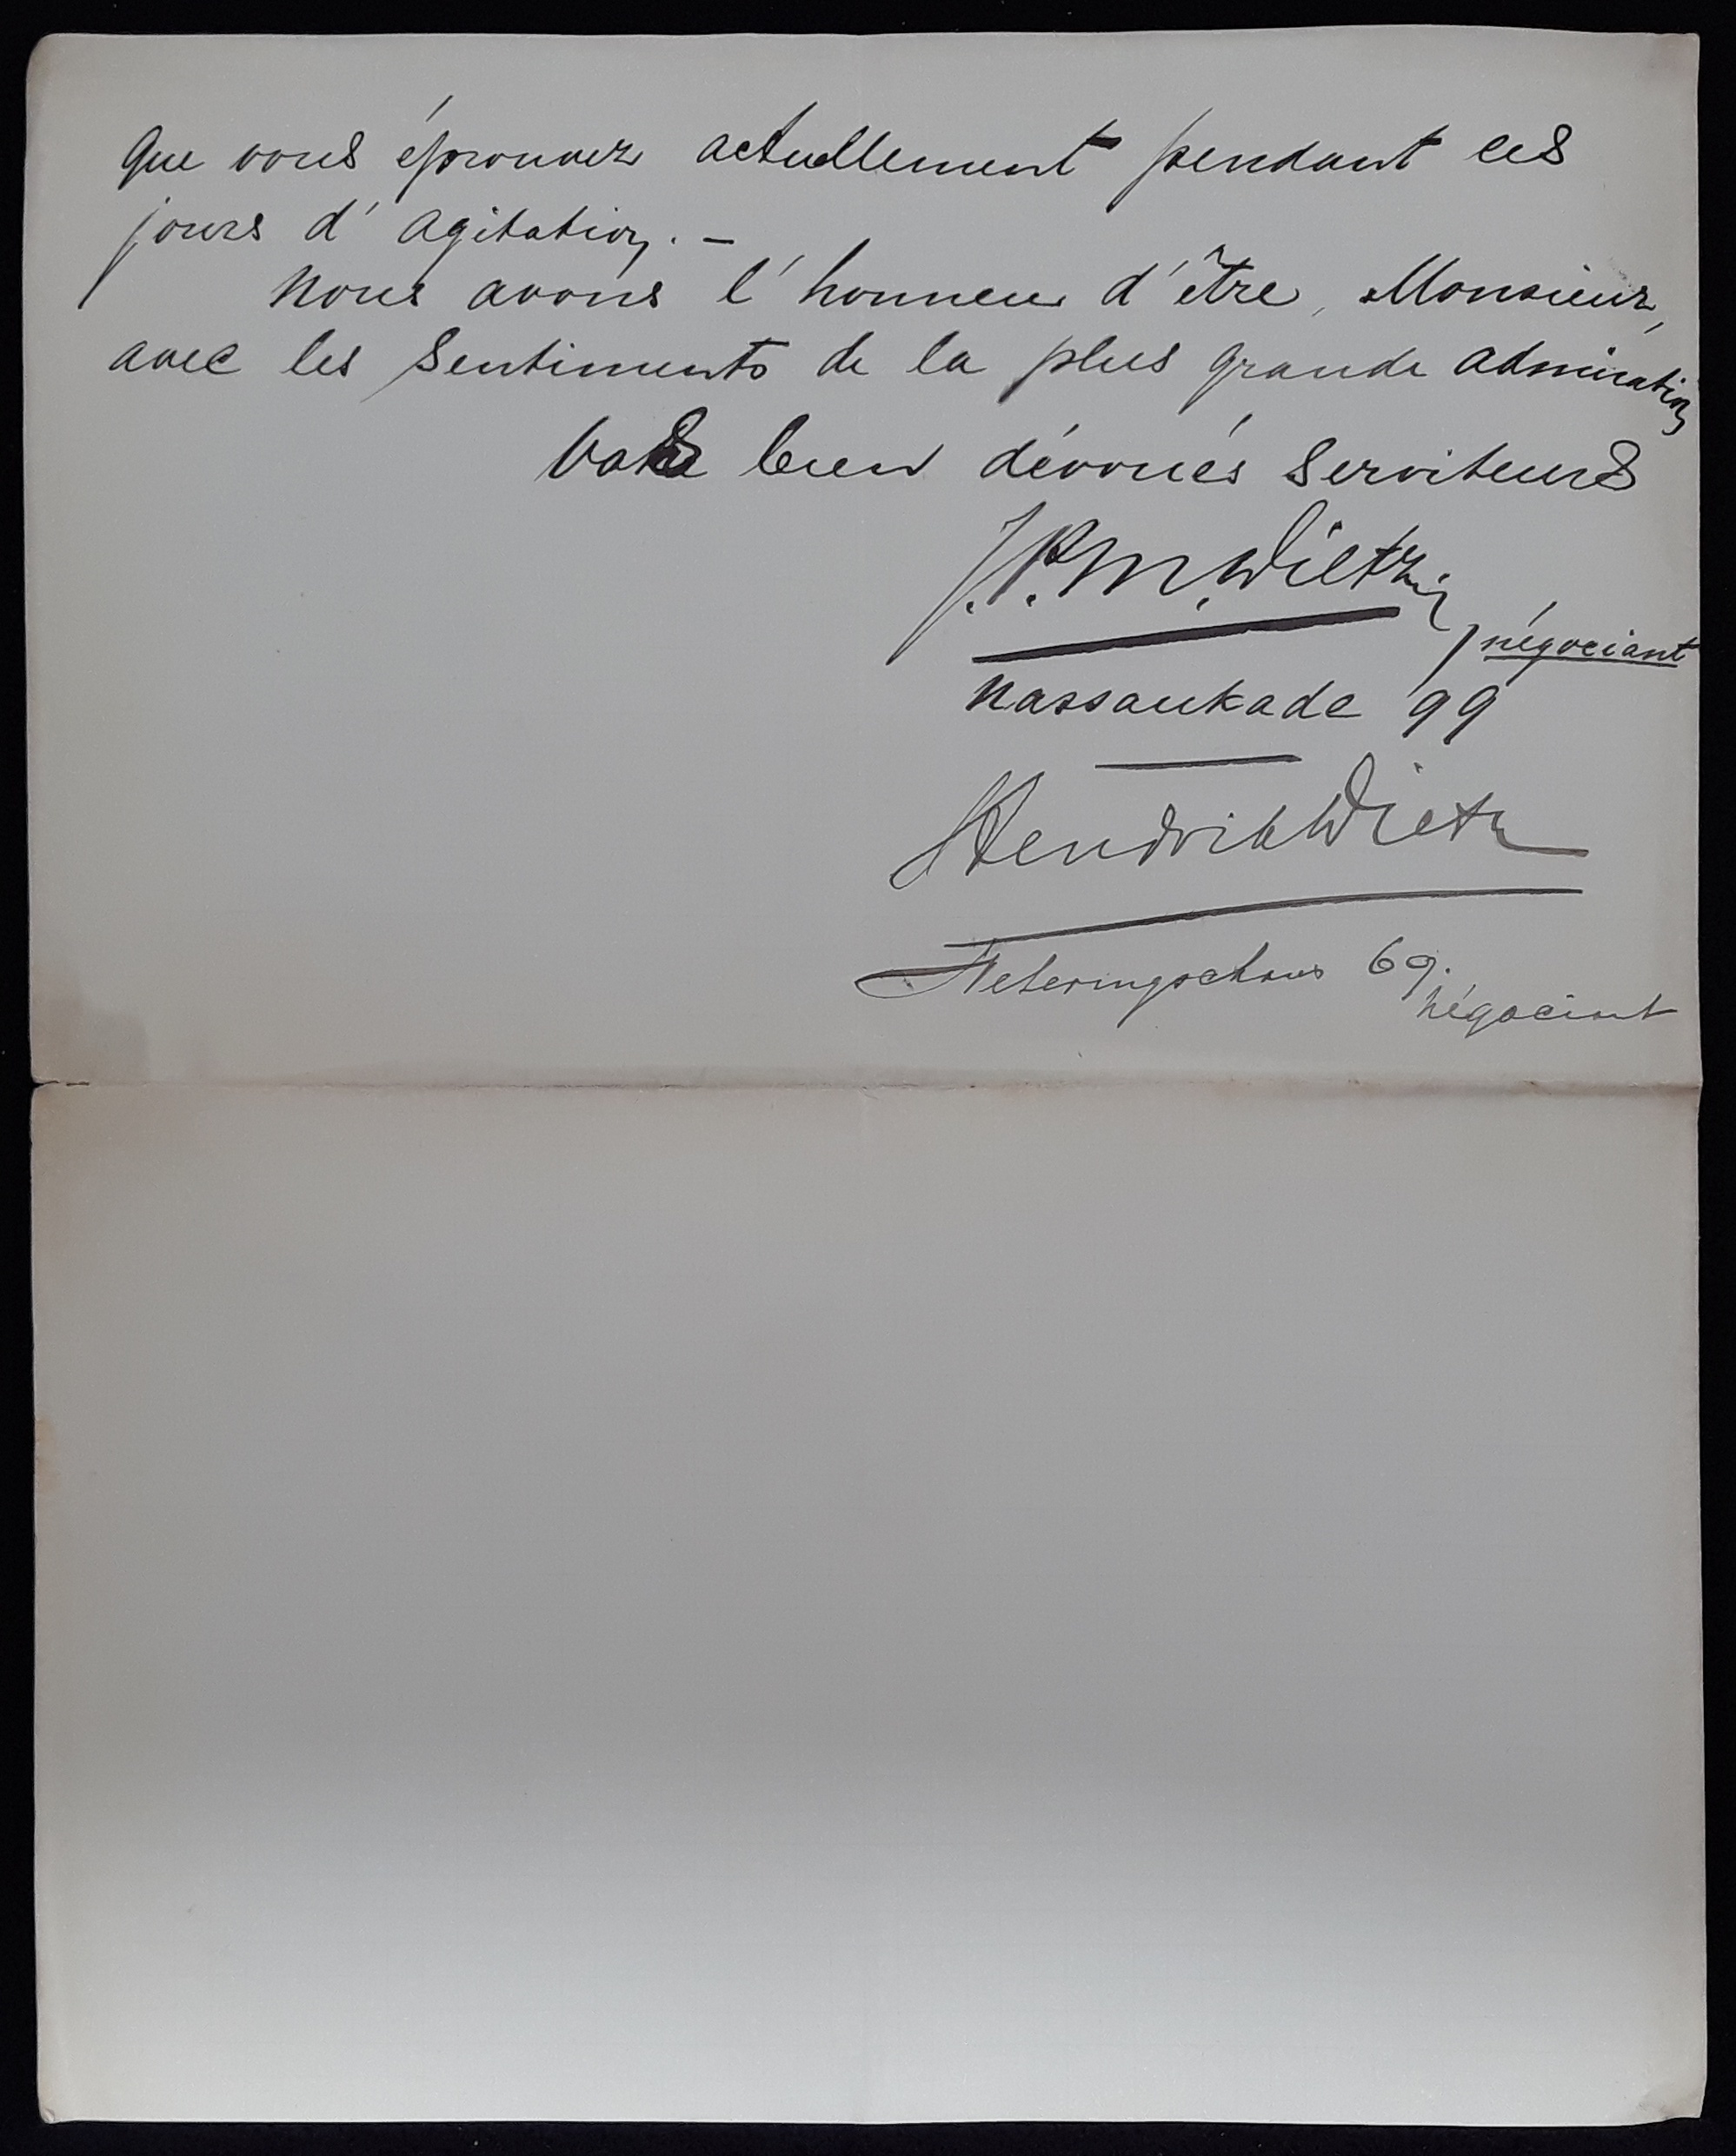 que vous éprouvez actuellement pendant ces
jours d'agitation. –
Nous avons l'honneur d'être, Monsieur,
avec les sentiments de la plus grande admiration
bien dévoués serviteurs
J.P.M. Dietz
négociant
Nassaukade 99
Hendrik Dietz
Weteringschans 69.
négociant